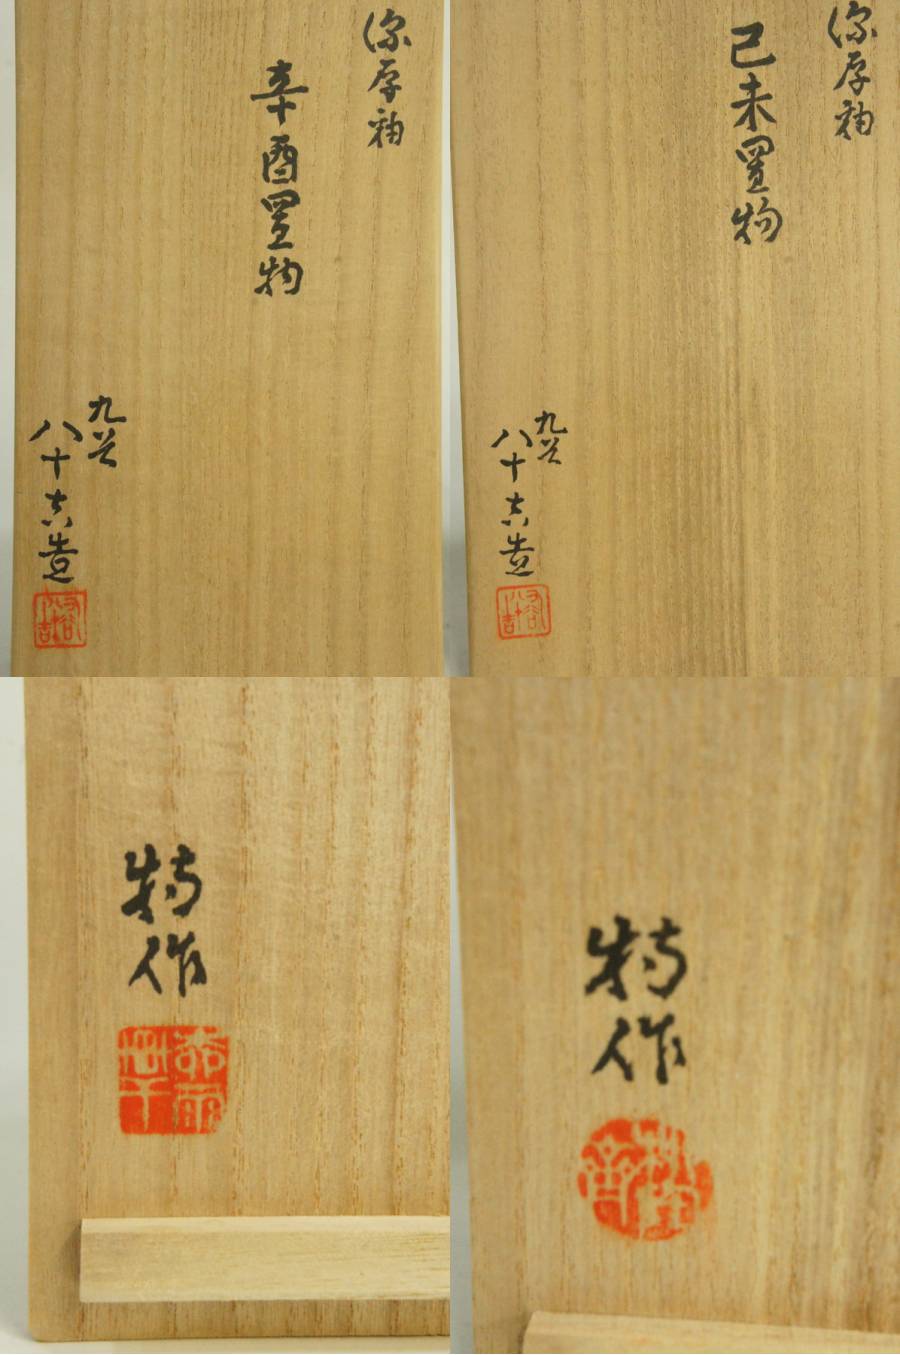 深厚釉
辛酉置物
九谷
八十吉造
深厚釉
己未置物
九谷
八十吉造
特作
特作